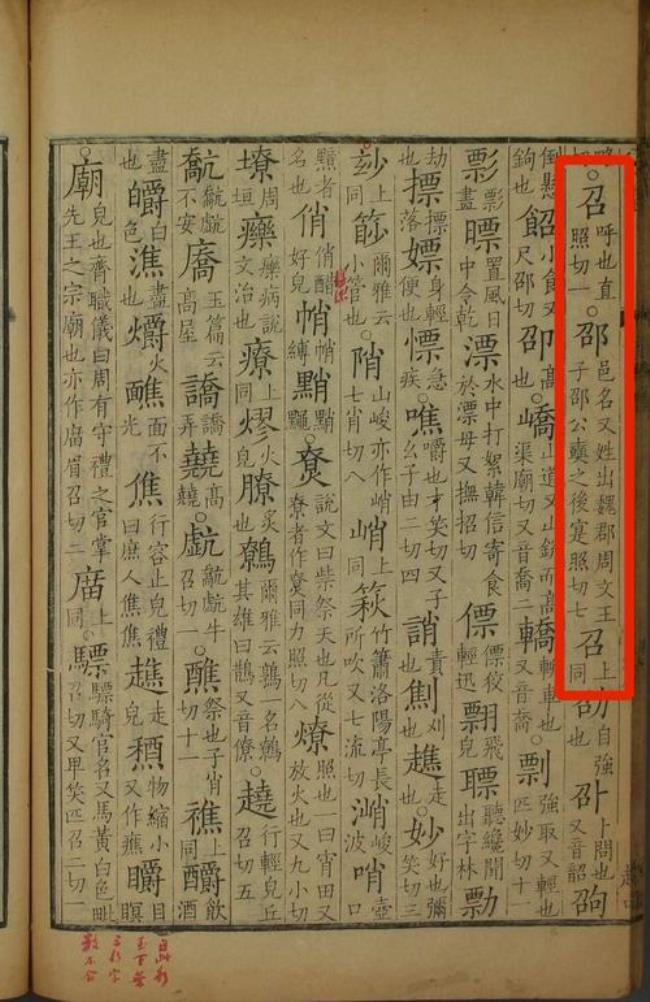 召呼也直照切一。邵邑名又姓出魏郡周文王子邵公奭之後寔照切七召上同劭自強也卜問也又音韶
倒懸鉤也䬰小食又尺邵切卲高也。嶠山道又山銳而高渠廟切又音喬二轎轎車也又音喬。剽強取又輕也匹妙切十一
彯彯畫㬓置風日中令乾漂水中打絮韓信寄食於漂母又撫招切僄僄狡輕迅翲飛皃聽纔聞出字林勡
劫也摽摽落嫖身輕便也慓急疾。噍嚼也才笑切又子幺子由二切四誚責也劁刈也趭走也。妙好也彌笑切三
玅上同篎爾雅云小管也。陗山峻亦作峭七肖切八峭上同竹簫洛陽亭長所吹又七流切峻波哨壺口
黯者名也俏俏醋好皃帩帩縛。尞說文曰柴祭天也凡從尞者作尞同力照切八燎照也一曰宵田又放火也又九小切
周垣療病說文治也療上同熮火皃膫炙也鷯爾雅云鶉一名鷯其雄曰鶛又音僚。趬行輕皃丘召切五
不安玉篇云高屋譑譑弄高。牛召切一。醮祭也子肖切十一上同釂飲酒
盡也皭白色潐盡也爝火也面不光僬行容止皃禮曰庶人僬僬趭走皃物縮小又作癄目瞑
。廟皃也齊職儀曰周有守祧之官掌先王之宗廟也亦作庿眉召切二庿上同。驃驃騎官名又馬黃白色毗召切又卑笑匹召二切一